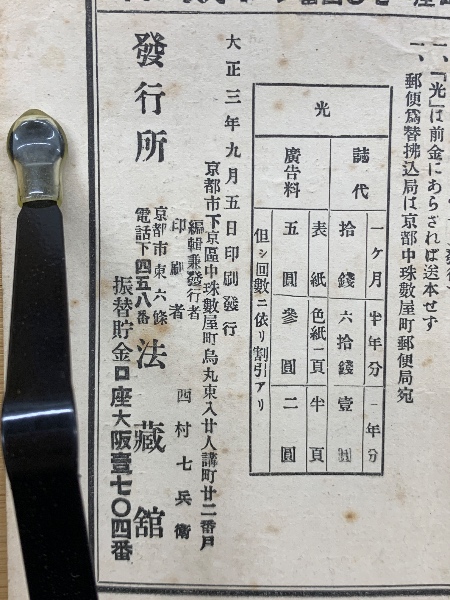 一、「光」は前金にあらざれば送本せず
一、郵便爲替拂込局は京都中珠數屋町郵便局宛
光
誌代
一ケ月 半年分 一年分
拾錢 六拾錢 壹圓
廣告料
表紙 色紙一頁 半頁
五圓 參圓 二圓
但シ回數ニ依リ割引アリ
大正三年九月五日印刷發行
京都市下京區中珠數屋町烏丸東入廿人講町廿二番戸
編輯兼發行者
印刷者
西村七兵衞
發行所
京都市東六條
電話下四五八番
法藏舘
振替貯金口座大阪壹七〇四番